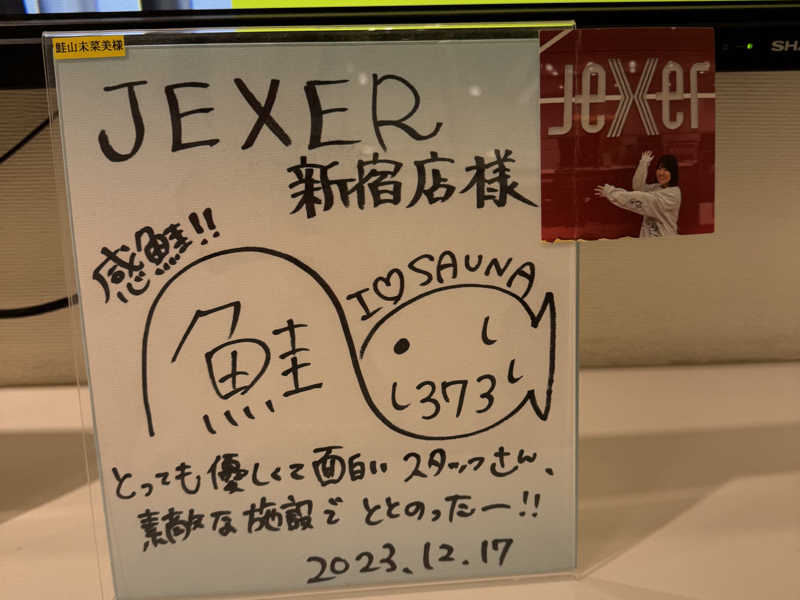 鮭山未菜美様
JEXER
新宿店様
感鮭!!
I♡SAUNA
鮭
373
とっても優しくて面白いスタッフさん、
素敵な施設でととのったー!!
2023.12.17
jexer
SHA